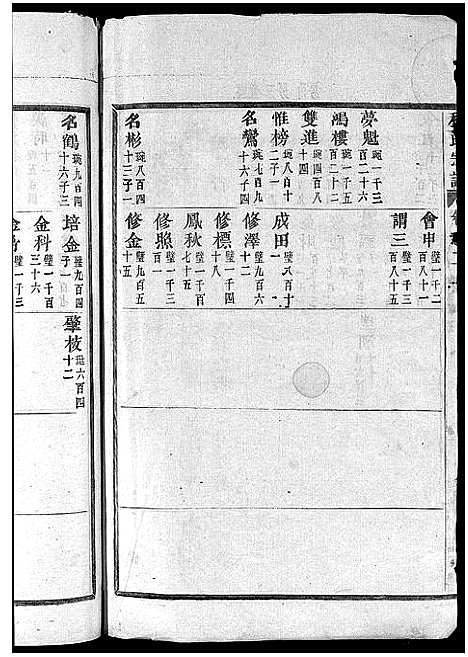 會申 璧一千二百八十一
謂三 璧一千八百八十五
夢魁 琬一千三百二十六
鴻樓 琬一千二百二十二
雙進 琬四百八十四
惟榜 琬八百十二子一
成田
名鸞 琬七百九十六子四
修澤 璧九百六十二
修標 璧一千四十八
鳳秋 璧一千百七十五
修照 璧一千三百一
名彬 琬八百四十三子一
修金 璧九百五十五
名鶴 琬九百四十六子三
培金 璧九百四子一
肇椄 琬六百四十二
金科 璧一千百三十六